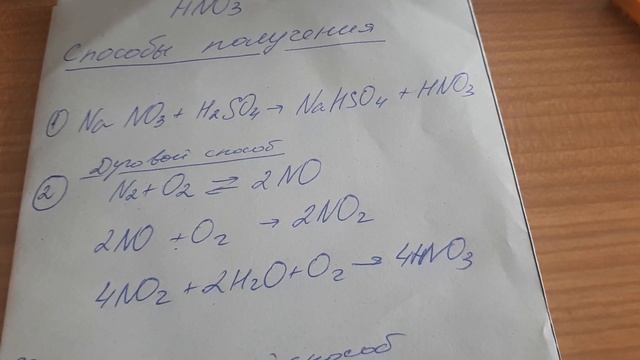 HNO3
Способы получения
1 NaNO3 + H2SO4 → NaHSO4 + HNO3
Дуговой способ
2 N2 + O2 ⇄ 2NO
2NO + O2 → 2NO2
4NO2 + 2H2O + O2 → 4HNO3
способ